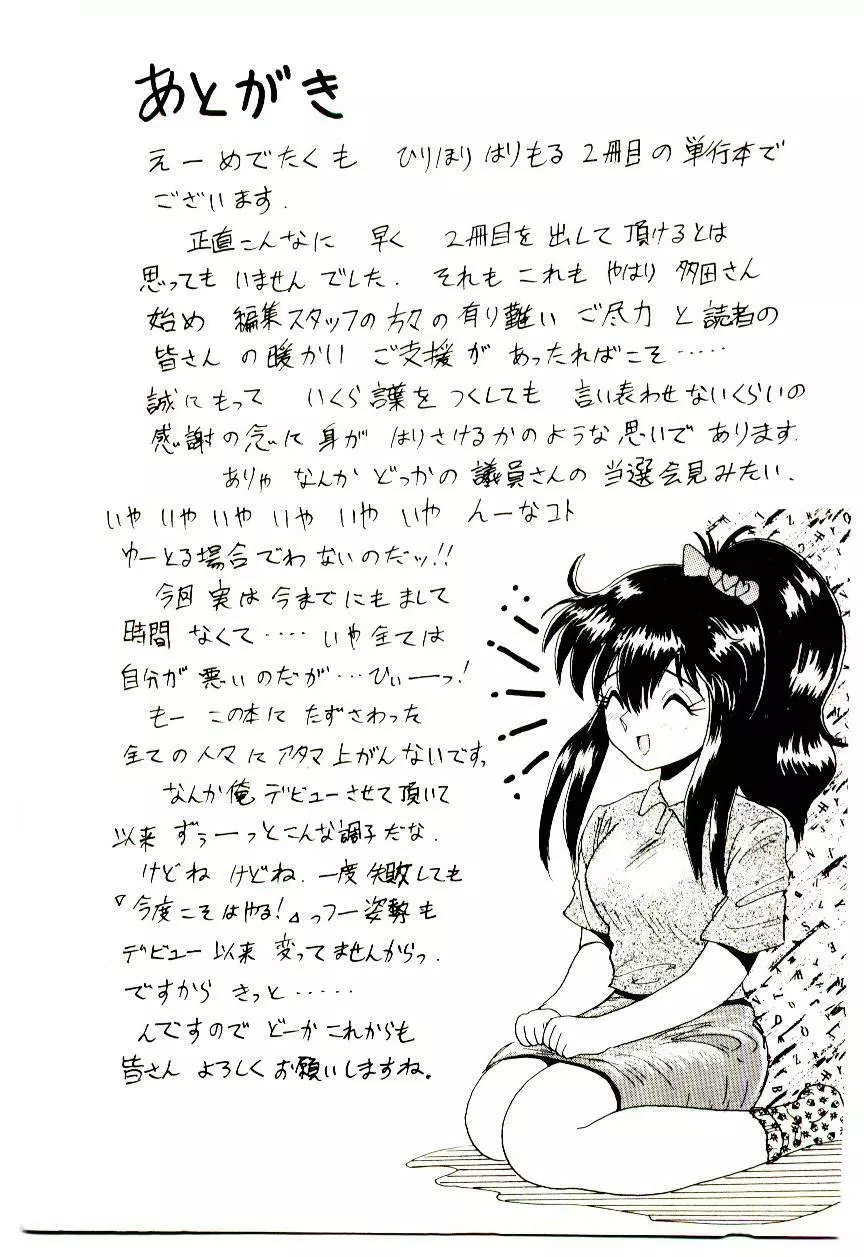 あとがき
えーめでたくも ひりほりはりもる 2冊目の単行本で
ございます.
正直こんなに 早く 2冊目を出して頂けるとは
思ってもいませんでした. それもこれも やはり 多田さん
始め 編集スタッフの方々の有り難い ご尽力と読者の
皆さんの暖かい ご支援が あったればこそ……
誠にもって いくら言葉をつくしても 言い表わせないくらいの
感謝の念に身が はりさけるかのような思いであります.
ありゃ なんか どっかの議員さんの当選会見みたい.
いや いや いや いや いや いや んーなコト
ゆーとる場合でわないのだッ!!
今回実は今までにもまして
時間なくて…‥ いや全ては
自分が悪いのだが…ひぃーっ!
もー この本に たずさわった
全ての人々にアタマ上がんないです。
なんか俺デビューさせて頂いて
以来 ずぅーっとこんな調子だな.
けどね けどね. 一度失敗しても
『今度こそはやる!』っつー姿勢も
デビュー以来 変ってませんからっ.
ですから きっと……
んですので どーかこれからも
皆さん よろしくお願いしますね。